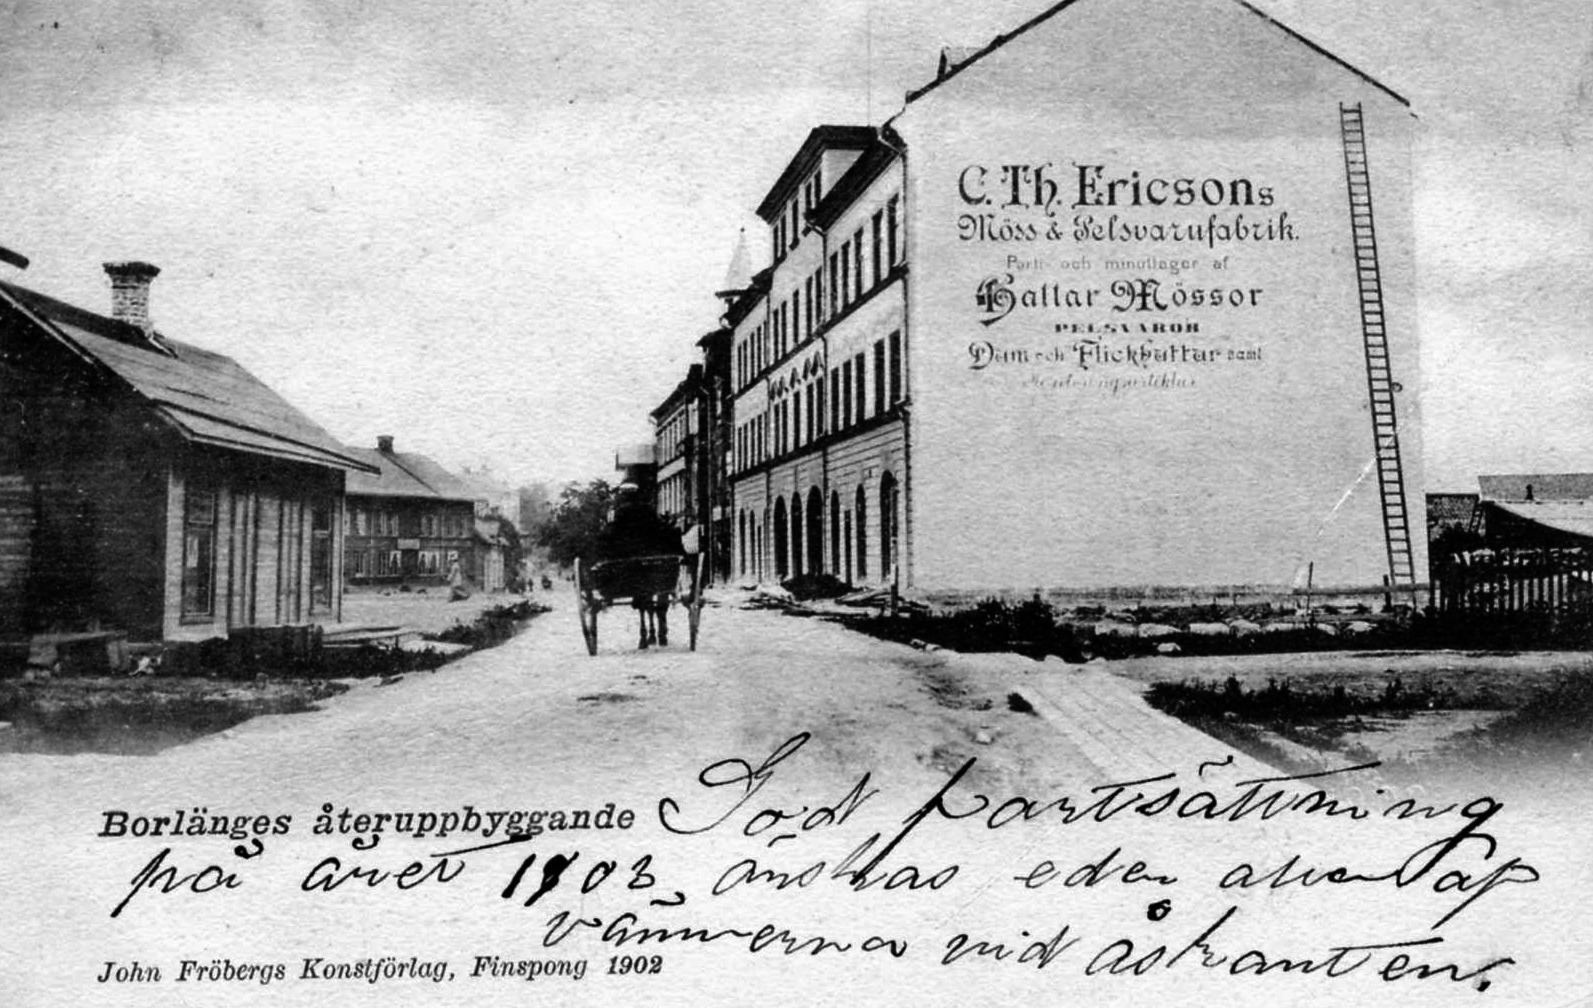 C. Th. Ericsons
Möss & Pelsvarufabrik.
Parti- och minutlager af
Hattar Mössor
PELSVAROR
Dam och Flickhattar samt
Borlänges återuppbyggande
God fortsättning
på året 1903 önskas eder alla af
vännerna vid åskanten.
John Fröbergs Konstförlag, Finspong 1902